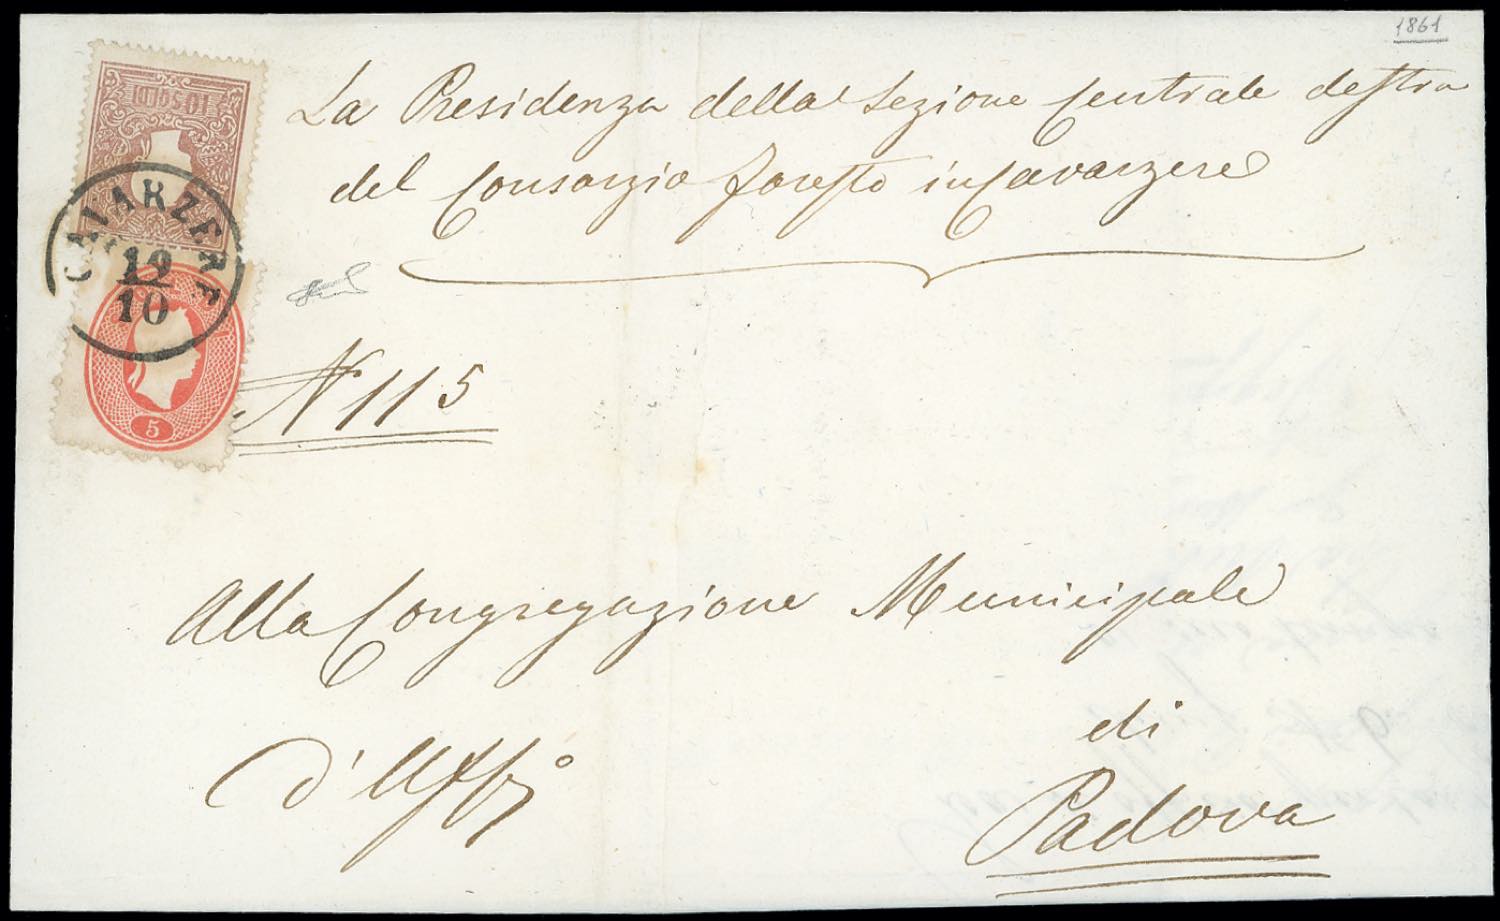 1861
La Presidenza della Sezione Centrale destra
del Consorzio Foresto in Cavarzere
10 SOLDI
CAVARZERE
19
10
5
N 115
Alla Congregazione Municipale
di
d'Uffo
Padova